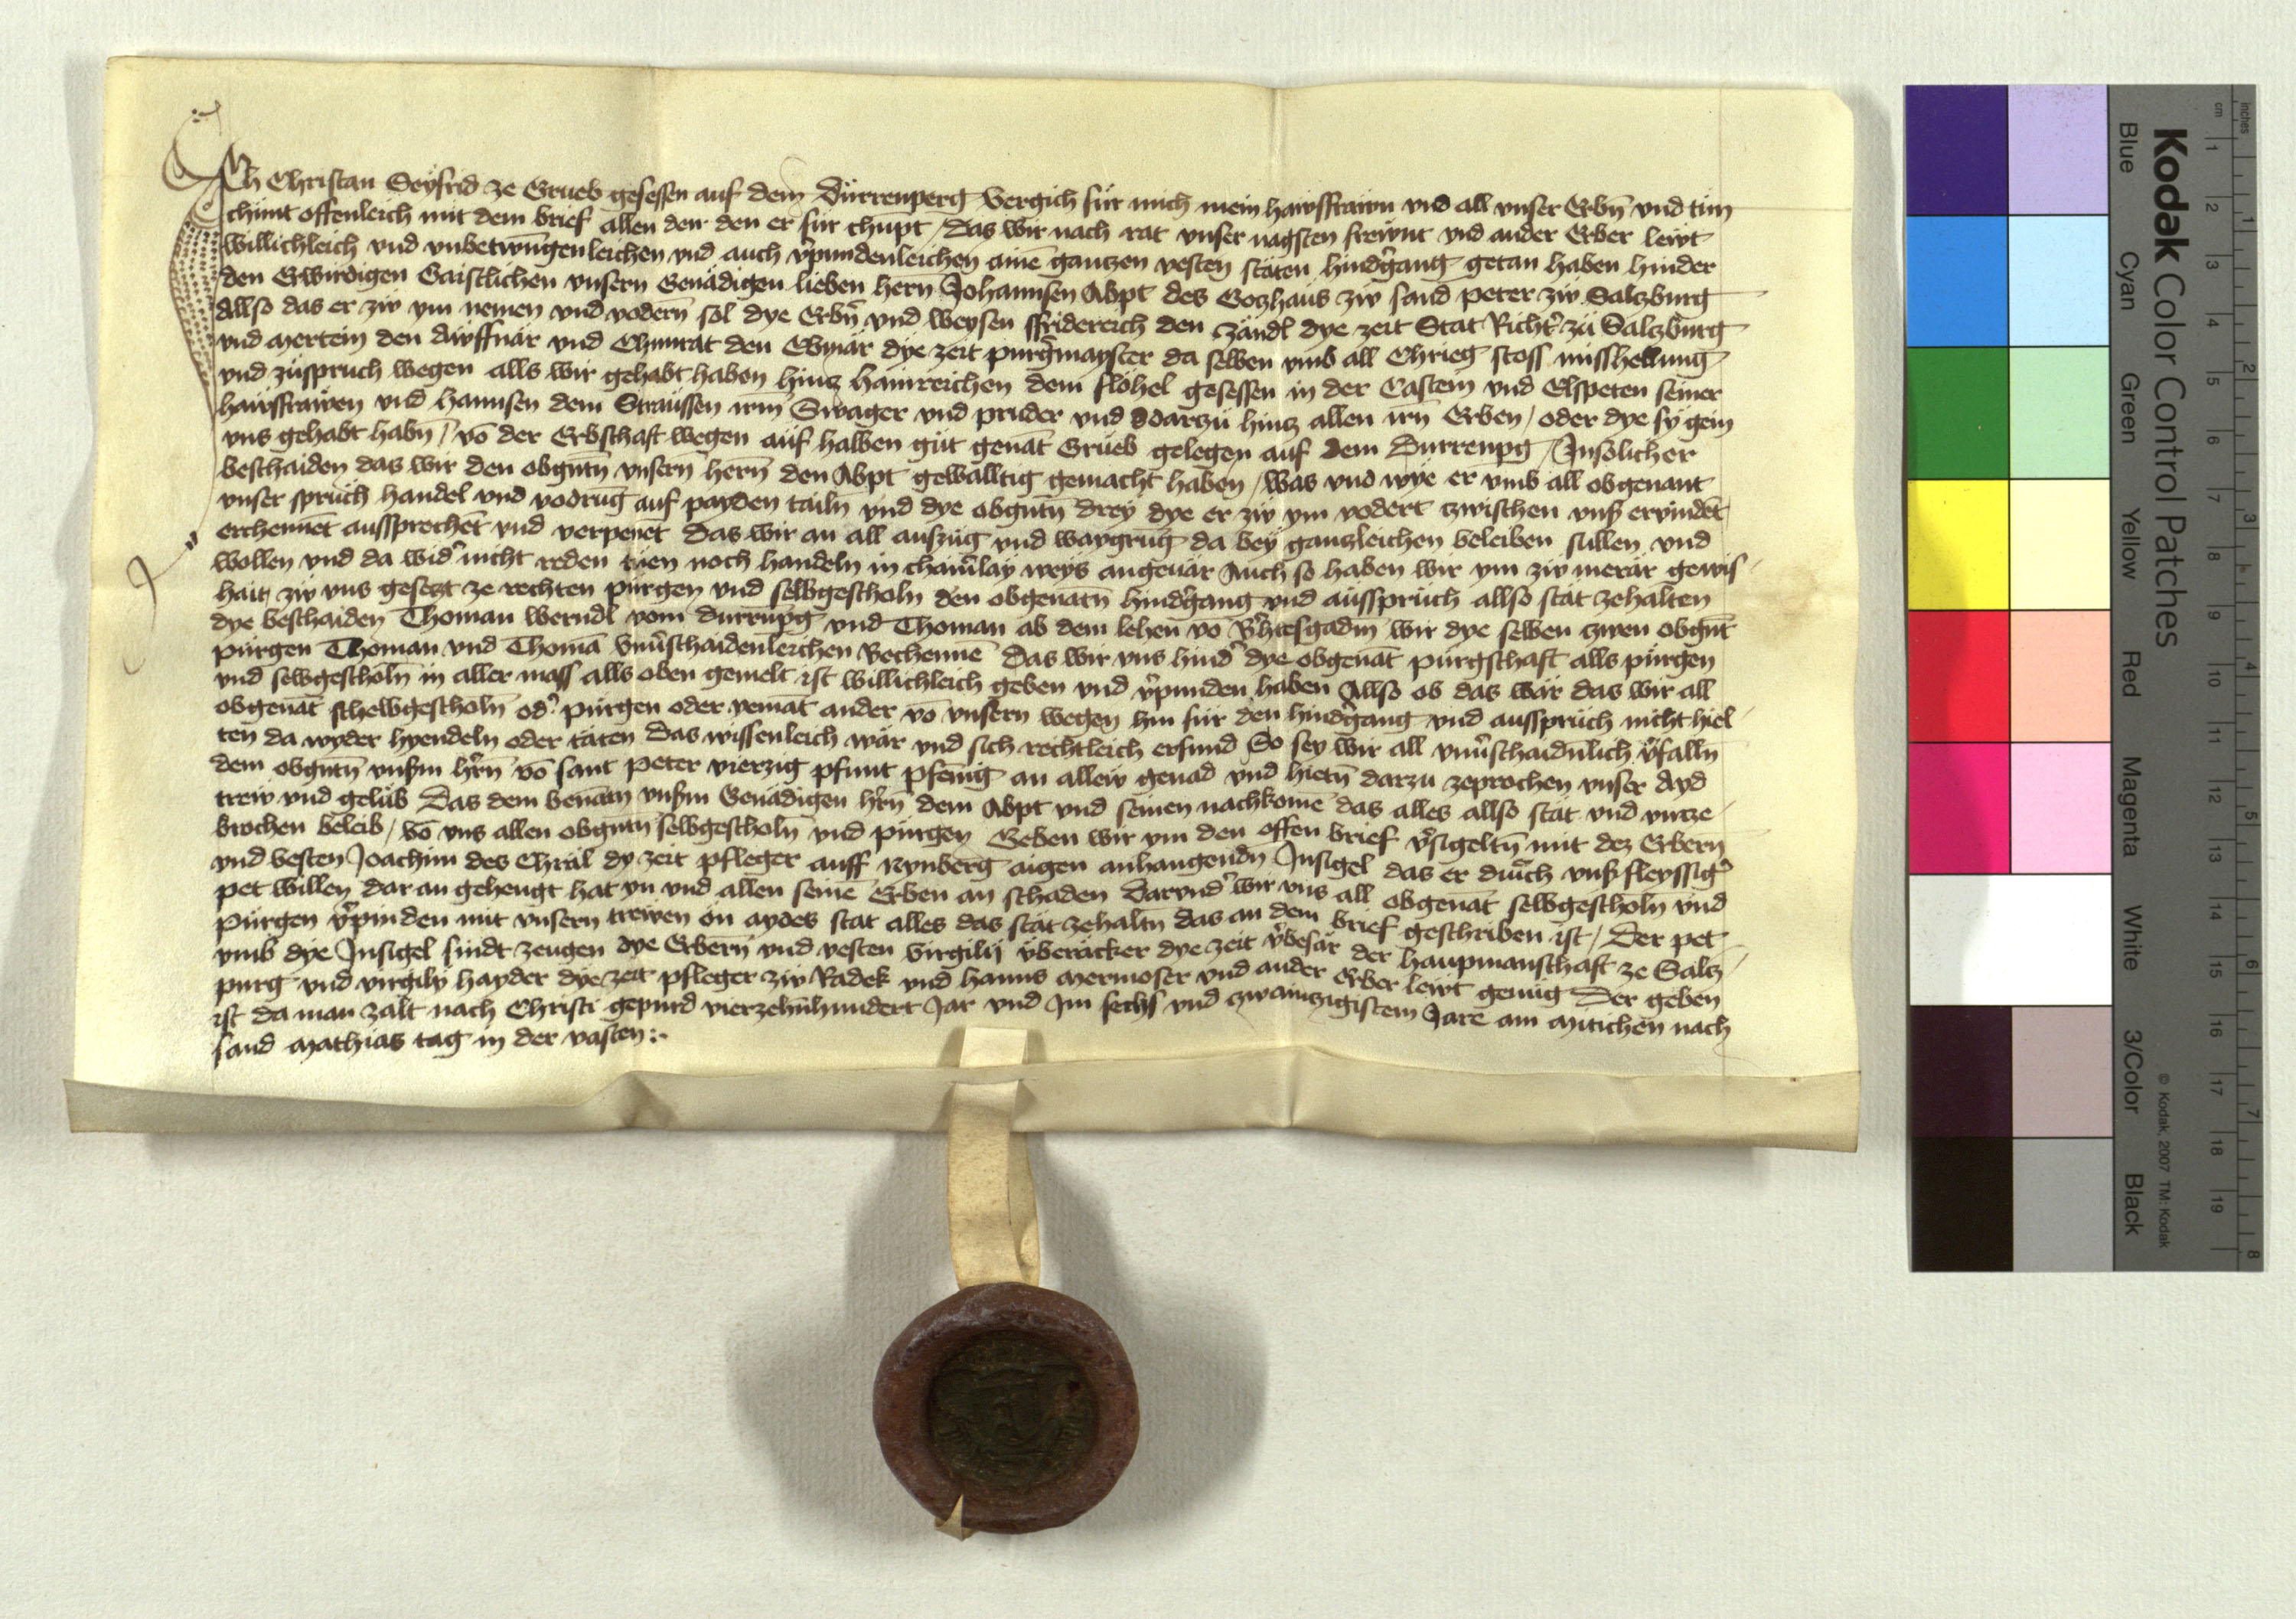 Ich Christan Seyfrid ze Grueb gesessen auf dem Dürrenperg Vergich für mich mein hawsfrawn vnd all vnser Erbn̄ vnd tun
chunt offenleich mit dem brief allen den den er für chūpt / Das wir nach rat vnser nagsten frewnt vnd ander Erber lewt
willichleich vnd vnbetwūngenleichen vnd auch v̉pundenleichen ainē gantzen vesten stäten hind̉gang getan haben hinder
den Erwirdigen Gaistlichen vnsern Genädigen lieben hern Johannsen Abpt des Gotzhaus zw sand peter zw Salzburg
Allso das er zw ym nemen vnd vodern̄ sol dye Erbn̄ vnd weysen ffridereich den zändl dye zeit Stat Richt̉ zü Salzburg
vnd mertein den Awffnär vnd Chunrat den Ebmär dye zeit purg̉mayster da selben vmb all Chrieg stoss misshellung
vnd züspruch wegen alls wir gehabt haben hintz hainreichen dem flöhel gesessen in der Gastein vnd Elspeten seiner
hawsfrawen vnd hannsen dem Straussen irm̄ Swager vnd pruder vnd darzü hintz allen irn̄ Erben / oder dye sy gein
vns gehabt habn̄ / vō der Erbschaft wegen auf halben güt genāt Grueb gelegen auf dem Durrenpg / Jnsolicher
beschaiden das wir den obgntn̄ vnsern̄ hern̄ den Abpt gewalltig gemacht haben / was vnd wye er vmb all obgenant
vnser spruch handel vnd vodrūg auf payden tailn̄ vnd dye obgntn̄ drey dye er zw ym vodert zwischen vnß ervindēt
erchennēt aussprechēt vnd verpenēt Das wir an all auszüg vnd waygrūg da bey ganzleichen beleiben sullen vnd
wollen vnd da wid̉ nicht reden tüen noch handeln in chain̉lay weys angeuär Auch so haben wir ym zw merär gewis
hait zw vns gesetzt ze rechten pürgen vnd selbgescholn den obgenatn̄ hind̉gang vnd ausspruch allso stät zehalten
dye beschaiden Thoman werndl vom durrnpg vnd Thoman ab dem lehen vō B̉htesgadm̄ wir dye selben zwen obgnt̄
pürgen Thoman vnd Thomā vnủschaidenleichen Bechennē Das wir vns hind̉ dye obgenāt pürgschaft alls pürgen
vnd selbgescholn̄ in aller mass alls oben gemelt ist willichleich geben vnd v̉punden haben Allso ob das wär das wir all
obgenāt schelbgescholn̄ od̉ pürgen oder yemāt ander vō vnsern wegen hin für den hind̉gang vnd ausspruch nicht hiel
ten da wyder hyendeln oder täten Das wissenleich wär vnd sich rechtleich erfund So sey wir all vnủschaidnlich v̉falln̄
dem obgntn̄ vnßm h̉rn̄ vō sant peter vierzig pfunt pfenīg an allew genad vnd hietn̄ darzu zeprochen vnser Ayd
trew vnd gelüb Das dem benātn vnßm Genädigen h̉rn̄ dem Abpt vnd seinen nachkomē das alles allso stät vnd vnze
brochen beleib / vō vns allen obgntn̄ selbgescholn̄ vnd pürgen Geben wir ym den offen brief v̉sigeltn̄ mit dez Erbern̄
vnd vesten Joachim des Chräl dy zeit pfleger auff Rynberg aigen anhangendn̄ Jnsigel das er durch vnß fleyssig̉
pet willen dar an gehengt hat ym vnd allen seinē Erben an schaden Darvnd̉ wir vns all obgenāt selbgescholn̄ vnd
pürgen v̉pinden mit vnsern trewen ön aydes stat alles das stät zehaltn das an dem brief geschriben ist / Der pet
vmb dye Jnsigel sindt zeugen dye Erbern̄ vnd vesten virgilÿ yberäcker dye zeit v̉besär der haupmanschaft ze Salcz
purg vnd virgilÿ hayder dye zeit pfleger zw Radek vnd hanns mermoser vnd ander Erber lewt genüg Der geben
ist da man zalt nach Christi gepurd vierzehnhundert Jar vnd Jm sechs vnd zwainzigistem Jare am mitichen nach
sand mathias tag in der vasten :·
Kodak Color Control Patches
Blue Cyan Green Yellow Red Magenta White 3/Color Black
© Kodak, 2007 TM: Kodak
cm 1 2 3 4 5 6 7 8 9 10 11 12 13 14 15 16 17 18 19
inches 1 2 3 4 5 6 7 8